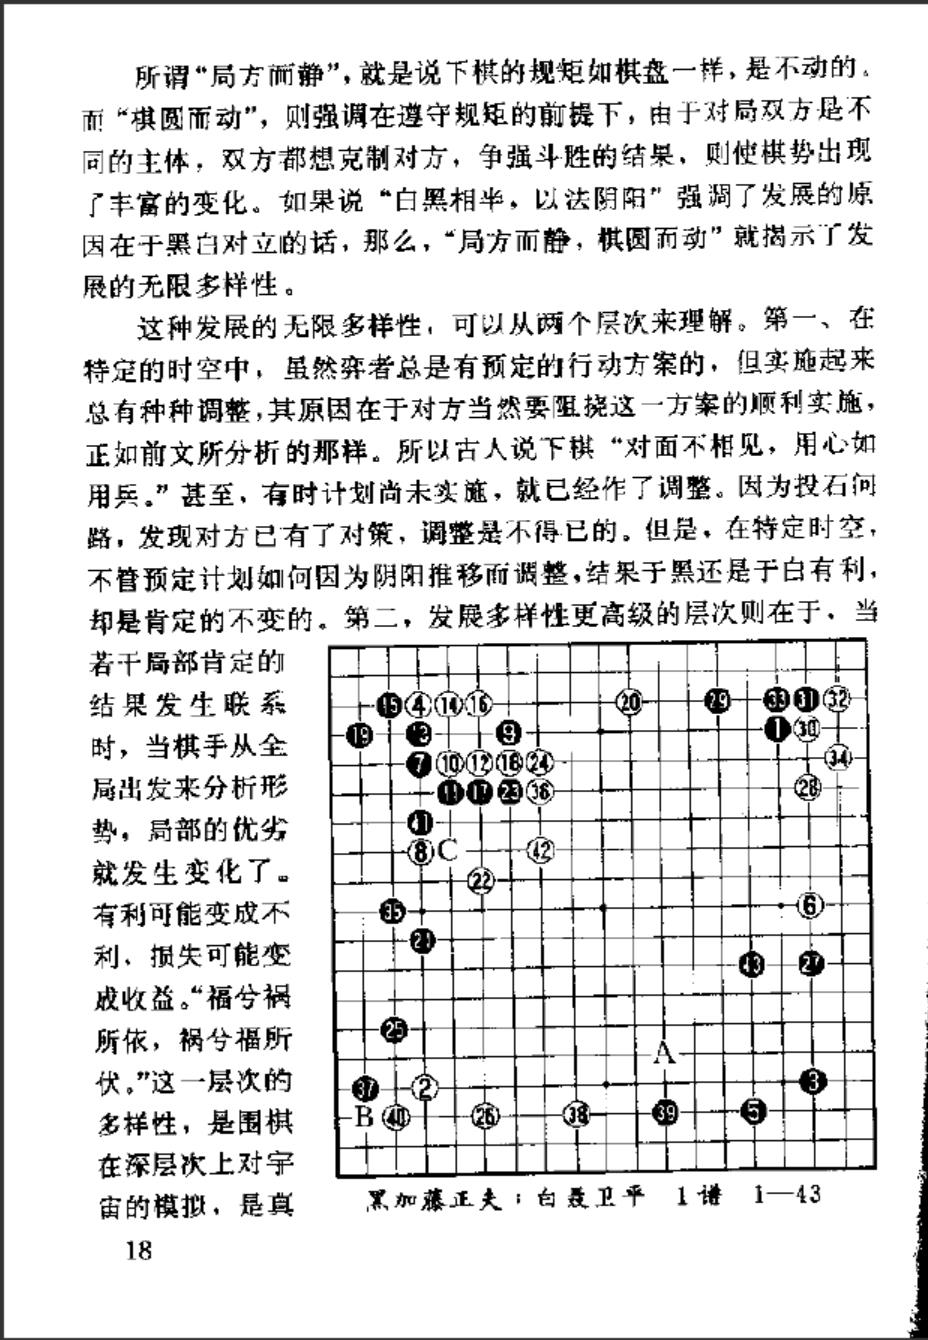 所谓“局方而静”，就是说下棋的规矩如棋盘一样，是不动的。
而“棋圆而动”，则强调在遵守规矩的前提下，由于对局双方是不
同的主体，双方都想克制对方，争强斗胜的结果，则使棋势出现
了丰富的变化。如果说“白黑相半，以法阴阳”强调了发展的原
因在于黑白对立的话，那么，“局方而静，棋圆而动”就揭示了发
展的无限多样性。
这种发展的无限多样性，可以从两个层次来理解。第一、在
特定的时空中，虽然弈者总是有预定的行动方案的，但实施起来
总有种种调整，其原因在于对方当然要阻挠这一方案的顺利实施，
正如前文所分析的那样。所以古人说下棋“对面不相见，用心如
用兵。”甚至，有时计划尚未实施，就已经作了调整。因为投石问
路，发现对方已有了对策，调整是不得已的。但是，在特定时空，
不管预定计划如何因为阴阳推移而调整，结果于黑还是于白有利，
却是肯定的不变的。第二，发展多样性更高级的层次则在于，当
若干局部肯定的
结果发生联系
时，当棋手从全
局出发来分析形
势，局部的优劣
就发生变化了。
有利可能变成不
利，损失可能变
成收益。“福兮祸
所依，祸兮福所
伏。”这一层次的
多样性，是围棋
在深层次上对宇
宙的模拟，是真
15 4 14 16 20 29 33 31 32
19 13 9 1 30
7 10 12 18 24 34
11 17 23 36 28
41
8 C 42
22
35 6
21
43 27
25
A
37 2 3
B 40 26 38 39 5
黑加藤正夫；白聂卫平 1谱 1—43
18